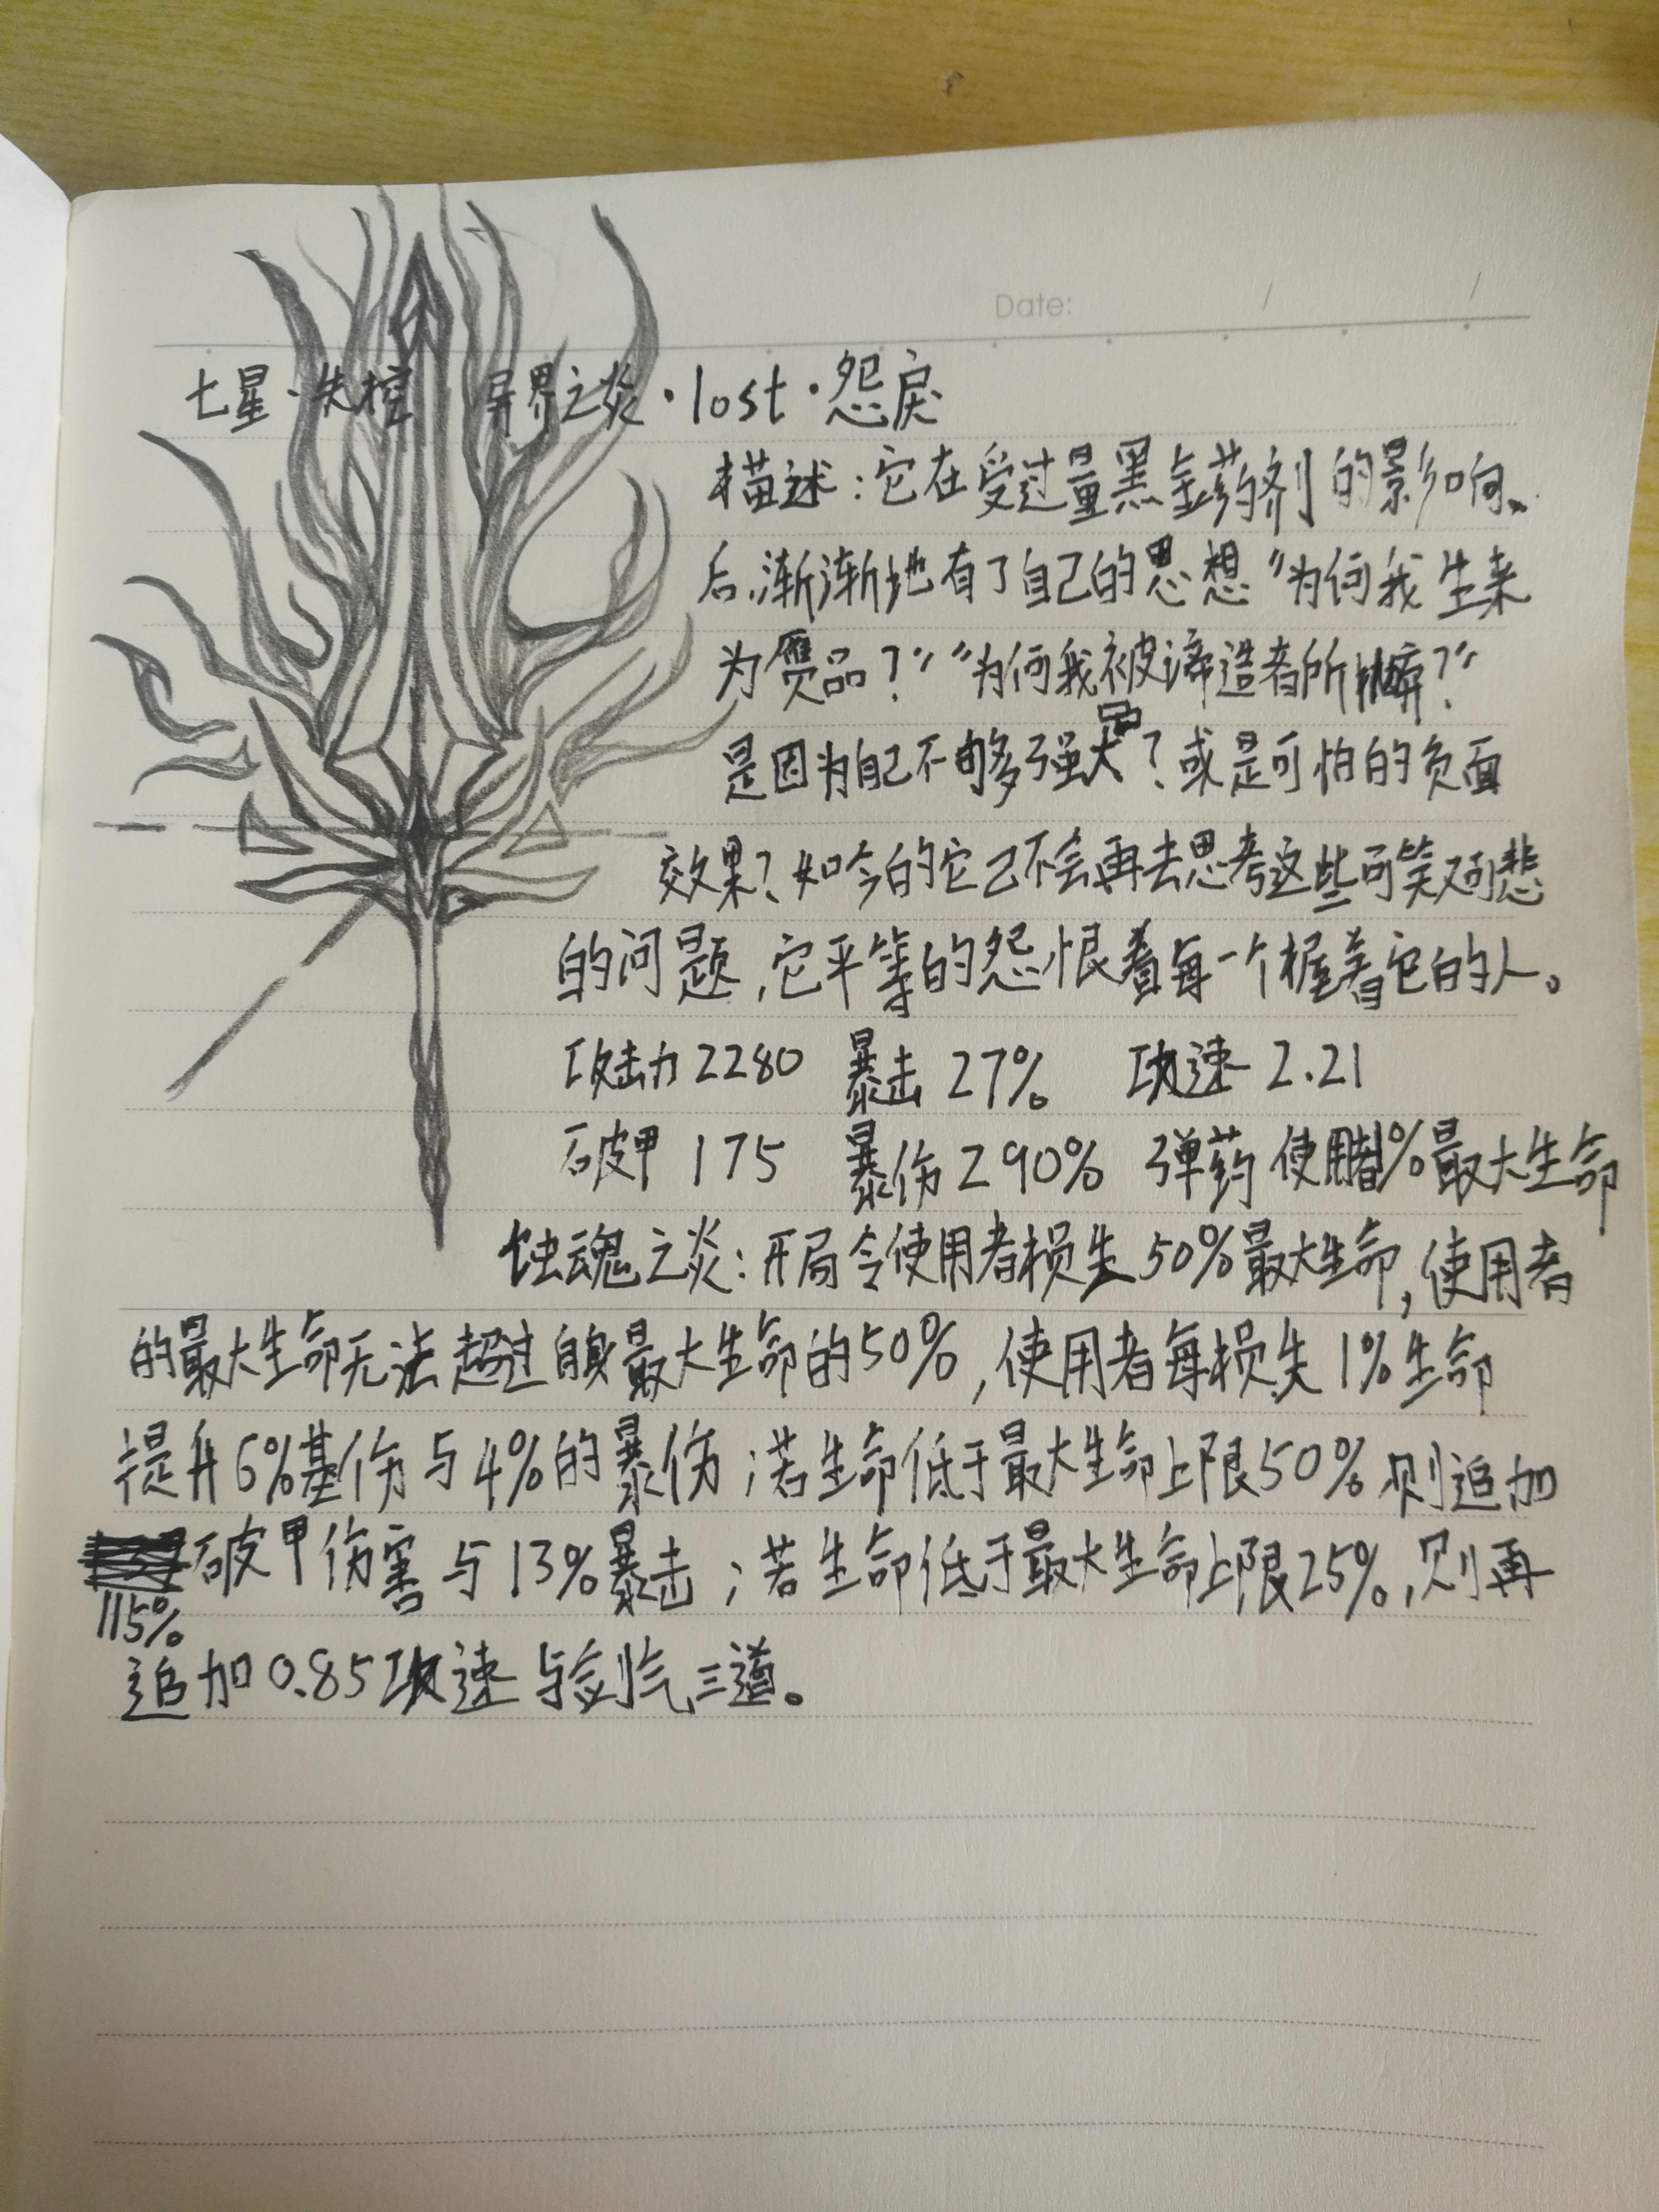 Date: / /
七星·失控 异界之炎·lost·怨戾
描述:它在受过量黑金药剂的影响、
后,渐渐地有了自己的思想“为何我生来
为赝品?”“为何我被谛造者所摒弃?”
是因为自己不够强大?或是可怕的负面
效果?如今的它己不会再去思考这些可笑又可悲
的问题,它平等的怨恨着每一个握着它的人。
攻击力2280 暴击27% 攻速2.21
破甲175 暴伤290% 弹药 使用者1%最大生命
蚀魂之炎:开局令使用者损失50%最大生命,使用者
的最大生命无法超过自身最大生命的50%,使用者每损失1%生命
提升6%基伤与4%的暴伤;若生命低于最大生命上限50%则追加
破甲伤害与13%暴击;若生命低于最大生命上限25%,则再
115%
追加0.85攻速与剑气三道。